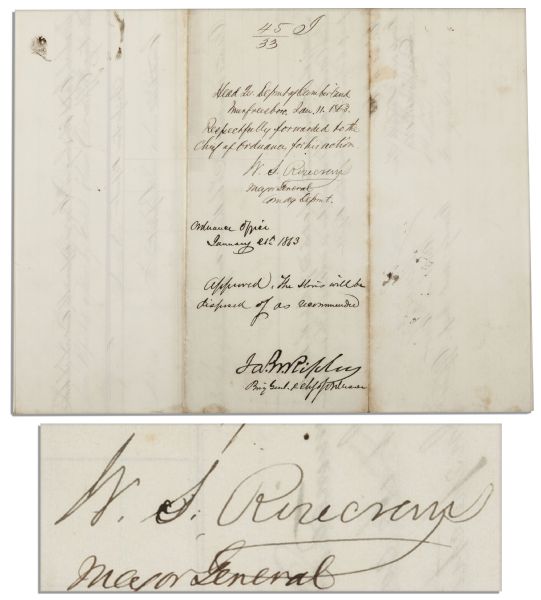 45 I
33
Head Qr. Depmt of Cumberland
Murfreesboro, Jan. 11. 1863.
Respectfully forwarded to the
Chief of Ordnance, for his action
W. S. Rosecrans
Major General
Comdg Depmt.
Ordnance Office
January 21st 1863
Approved. The stores will be
disposed of as recommended
Jas W Ripley
Brig Genl & Chf of Ordnance
W. S. Rosecrans
Major General